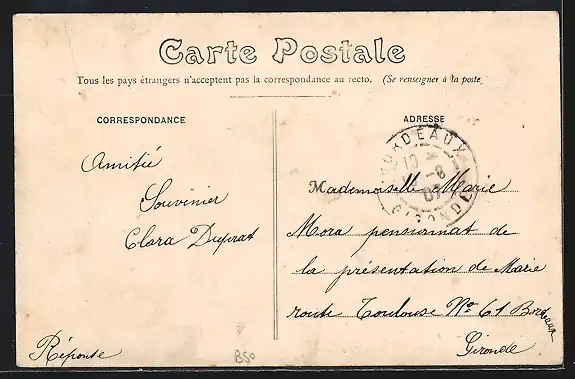 Carte Postale
Tous les pays étrangers n'acceptent pas la correspondance au recto. (Se renseigner à la poste
CORRESPONDANCE
ADRESSE
BORDEAUX
GIRONDE
Amitié
Souvinier
Clara Duprat
Réponse
Mademoiselle Marie
Mora pensionnat de
la présentation de Marie
route Toulouse No 61 Bordeaux
Gironde
B50